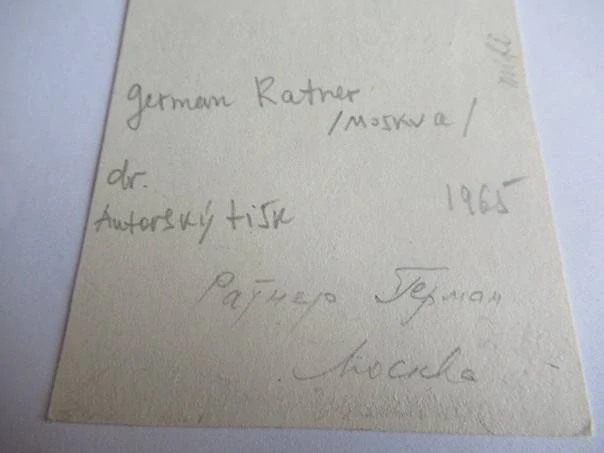 german Ratner
/Moskva/
dr.
1965
Autorský tisk
Ратнер Герман
Москва